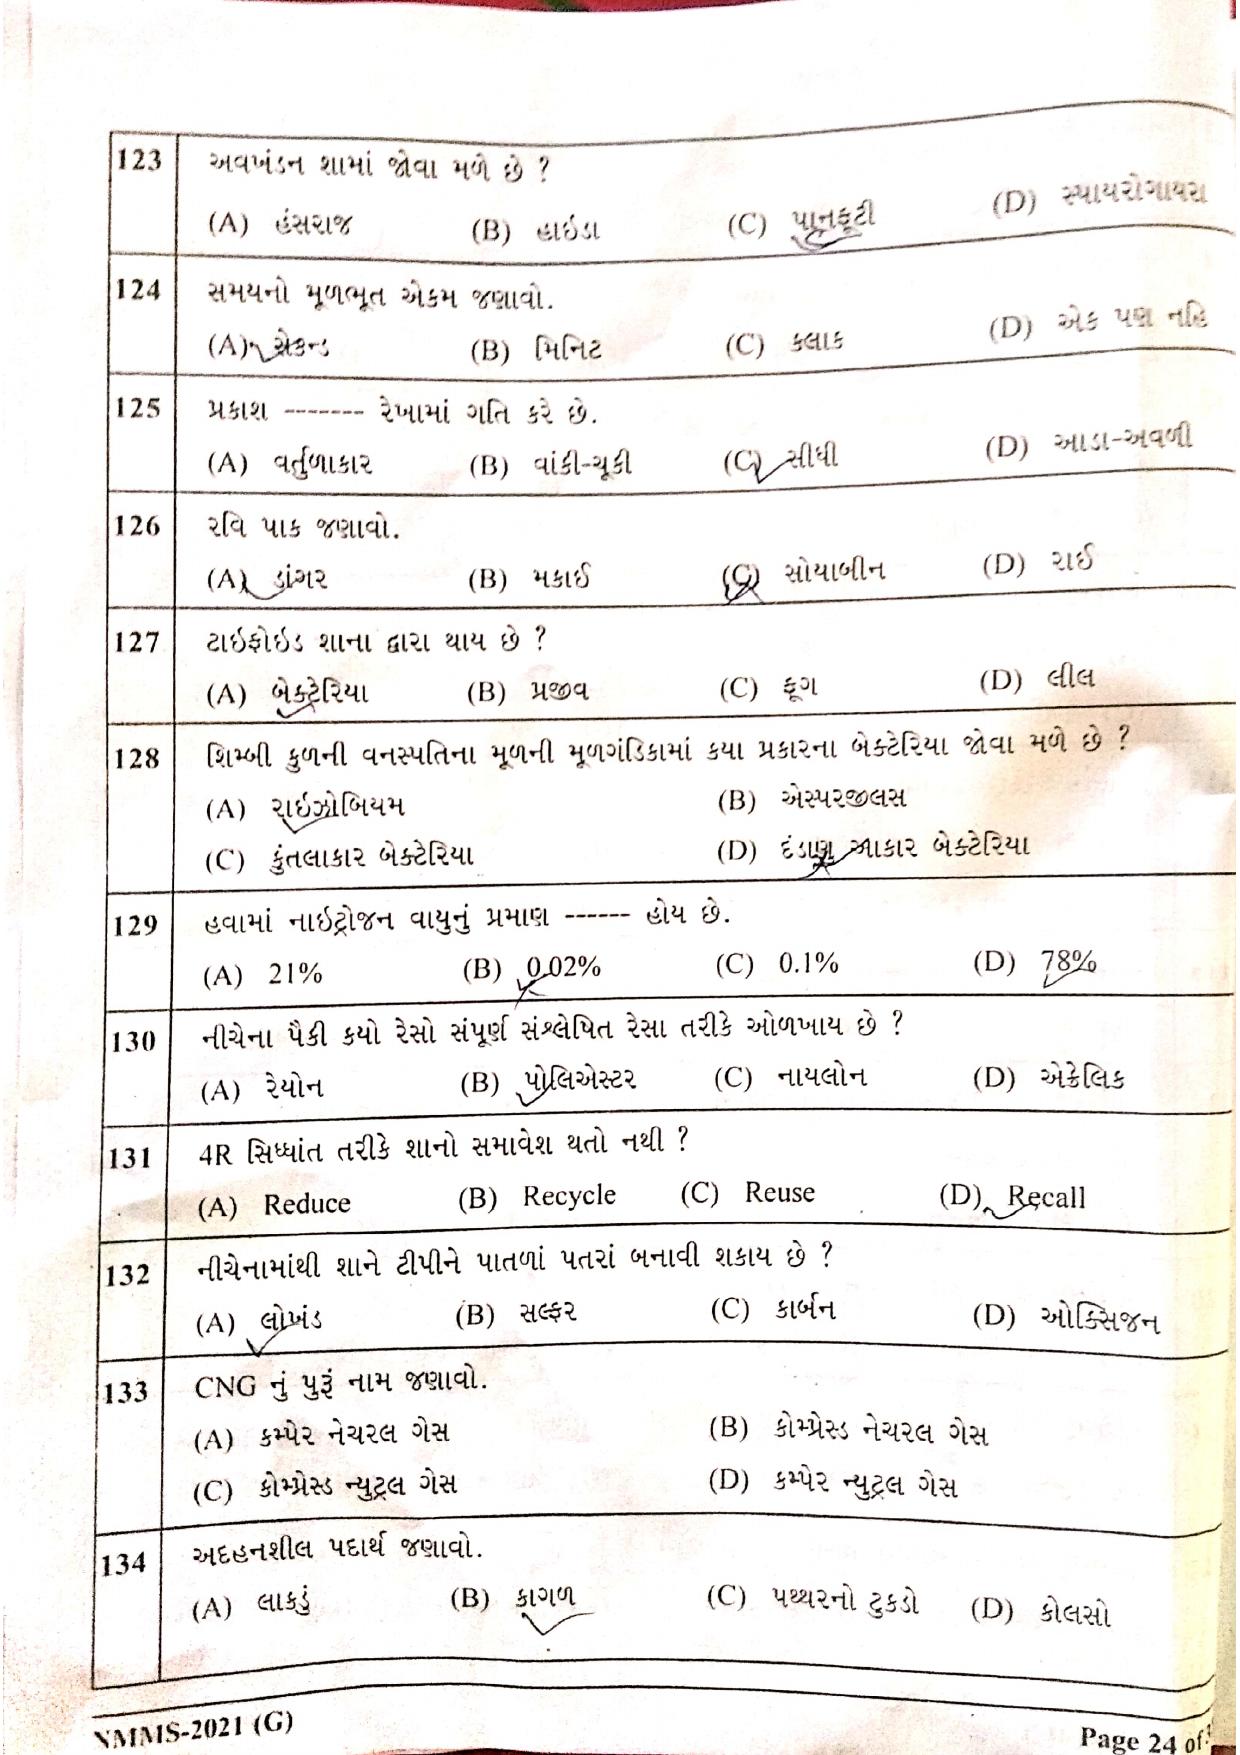 123 અવખંડન શામાં જોવા મળે છે ?
(A) હંસરાજ (B) હાઇડા (C) પાનફૂટી (D) સ્પાયરોગાયરા
124 સમયનો મૂળભૂત એકમ જણાવો.
(A) સેકન્ડ (B) મિનિટ (C) કલાક (D) એક પણ નહિ
125 પ્રકાશ ------- રેખામાં ગતિ કરે છે.
(A) વર્તુળાકાર (B) વાંકી-ચૂકી (C) સીધી (D) આડા-અવળી
126 રવિ પાક જણાવો.
(A) ડાંગર (B) મકાઈ (C) સોયાબીન (D) રાઈ
127 ટાઇફોઇડ શાના દ્વારા થાય છે ?
(A) બેક્ટેરિયા (B) પ્રજીવ (C) ફૂગ (D) લીલ
128 શિમ્બી કુળની વનસ્પતિના મૂળની મૂળગંડિકામાં કયા પ્રકારના બેક્ટેરિયા જોવા મળે છે ?
(A) રાઇઝોબિયમ (B) એસ્પરજીલસ
(C) કુંતલાકાર બેક્ટેરિયા (D) દંડાણુ આકાર બેક્ટેરિયા
129 હવામાં નાઇટ્રોજન વાયુનું પ્રમાણ ------ હોય છે.
(A) 21% (B) 0.02% (C) 0.1% (D) 78%
130 નીચેના પૈકી કયો રેસો સંપૂર્ણ સંશ્લેષિત રેસા તરીકે ઓળખાય છે ?
(A) રેયોન (B) પોલિએસ્ટર (C) નાયલોન (D) એક્રેલિક
131 4R સિધ્ધાંત તરીકે શાનો સમાવેશ થતો નથી ?
(A) Reduce (B) Recycle (C) Reuse (D) Recall
132 નીચેનામાંથી શાને ટીપીને પાતળાં પતરાં બનાવી શકાય છે ?
(A) લોખંડ (B) સલ્ફર (C) કાર્બન (D) ઓક્સિજન
133 CNG નું પુરૂં નામ જણાવો.
(A) કમ્પેર નેચરલ ગેસ (B) કોમ્પ્રેસ્ડ નેચરલ ગેસ
(C) કોમ્પ્રેસ્ડ ન્યુટ્રલ ગેસ (D) કમ્પેર ન્યુટ્રલ ગેસ
134 અદહનશીલ પદાર્થ જણાવો.
(A) લાકડું (B) કાગળ (C) પથ્થરનો ટુકડો (D) કોલસો
NMMS-2021 (G) Page 24 of